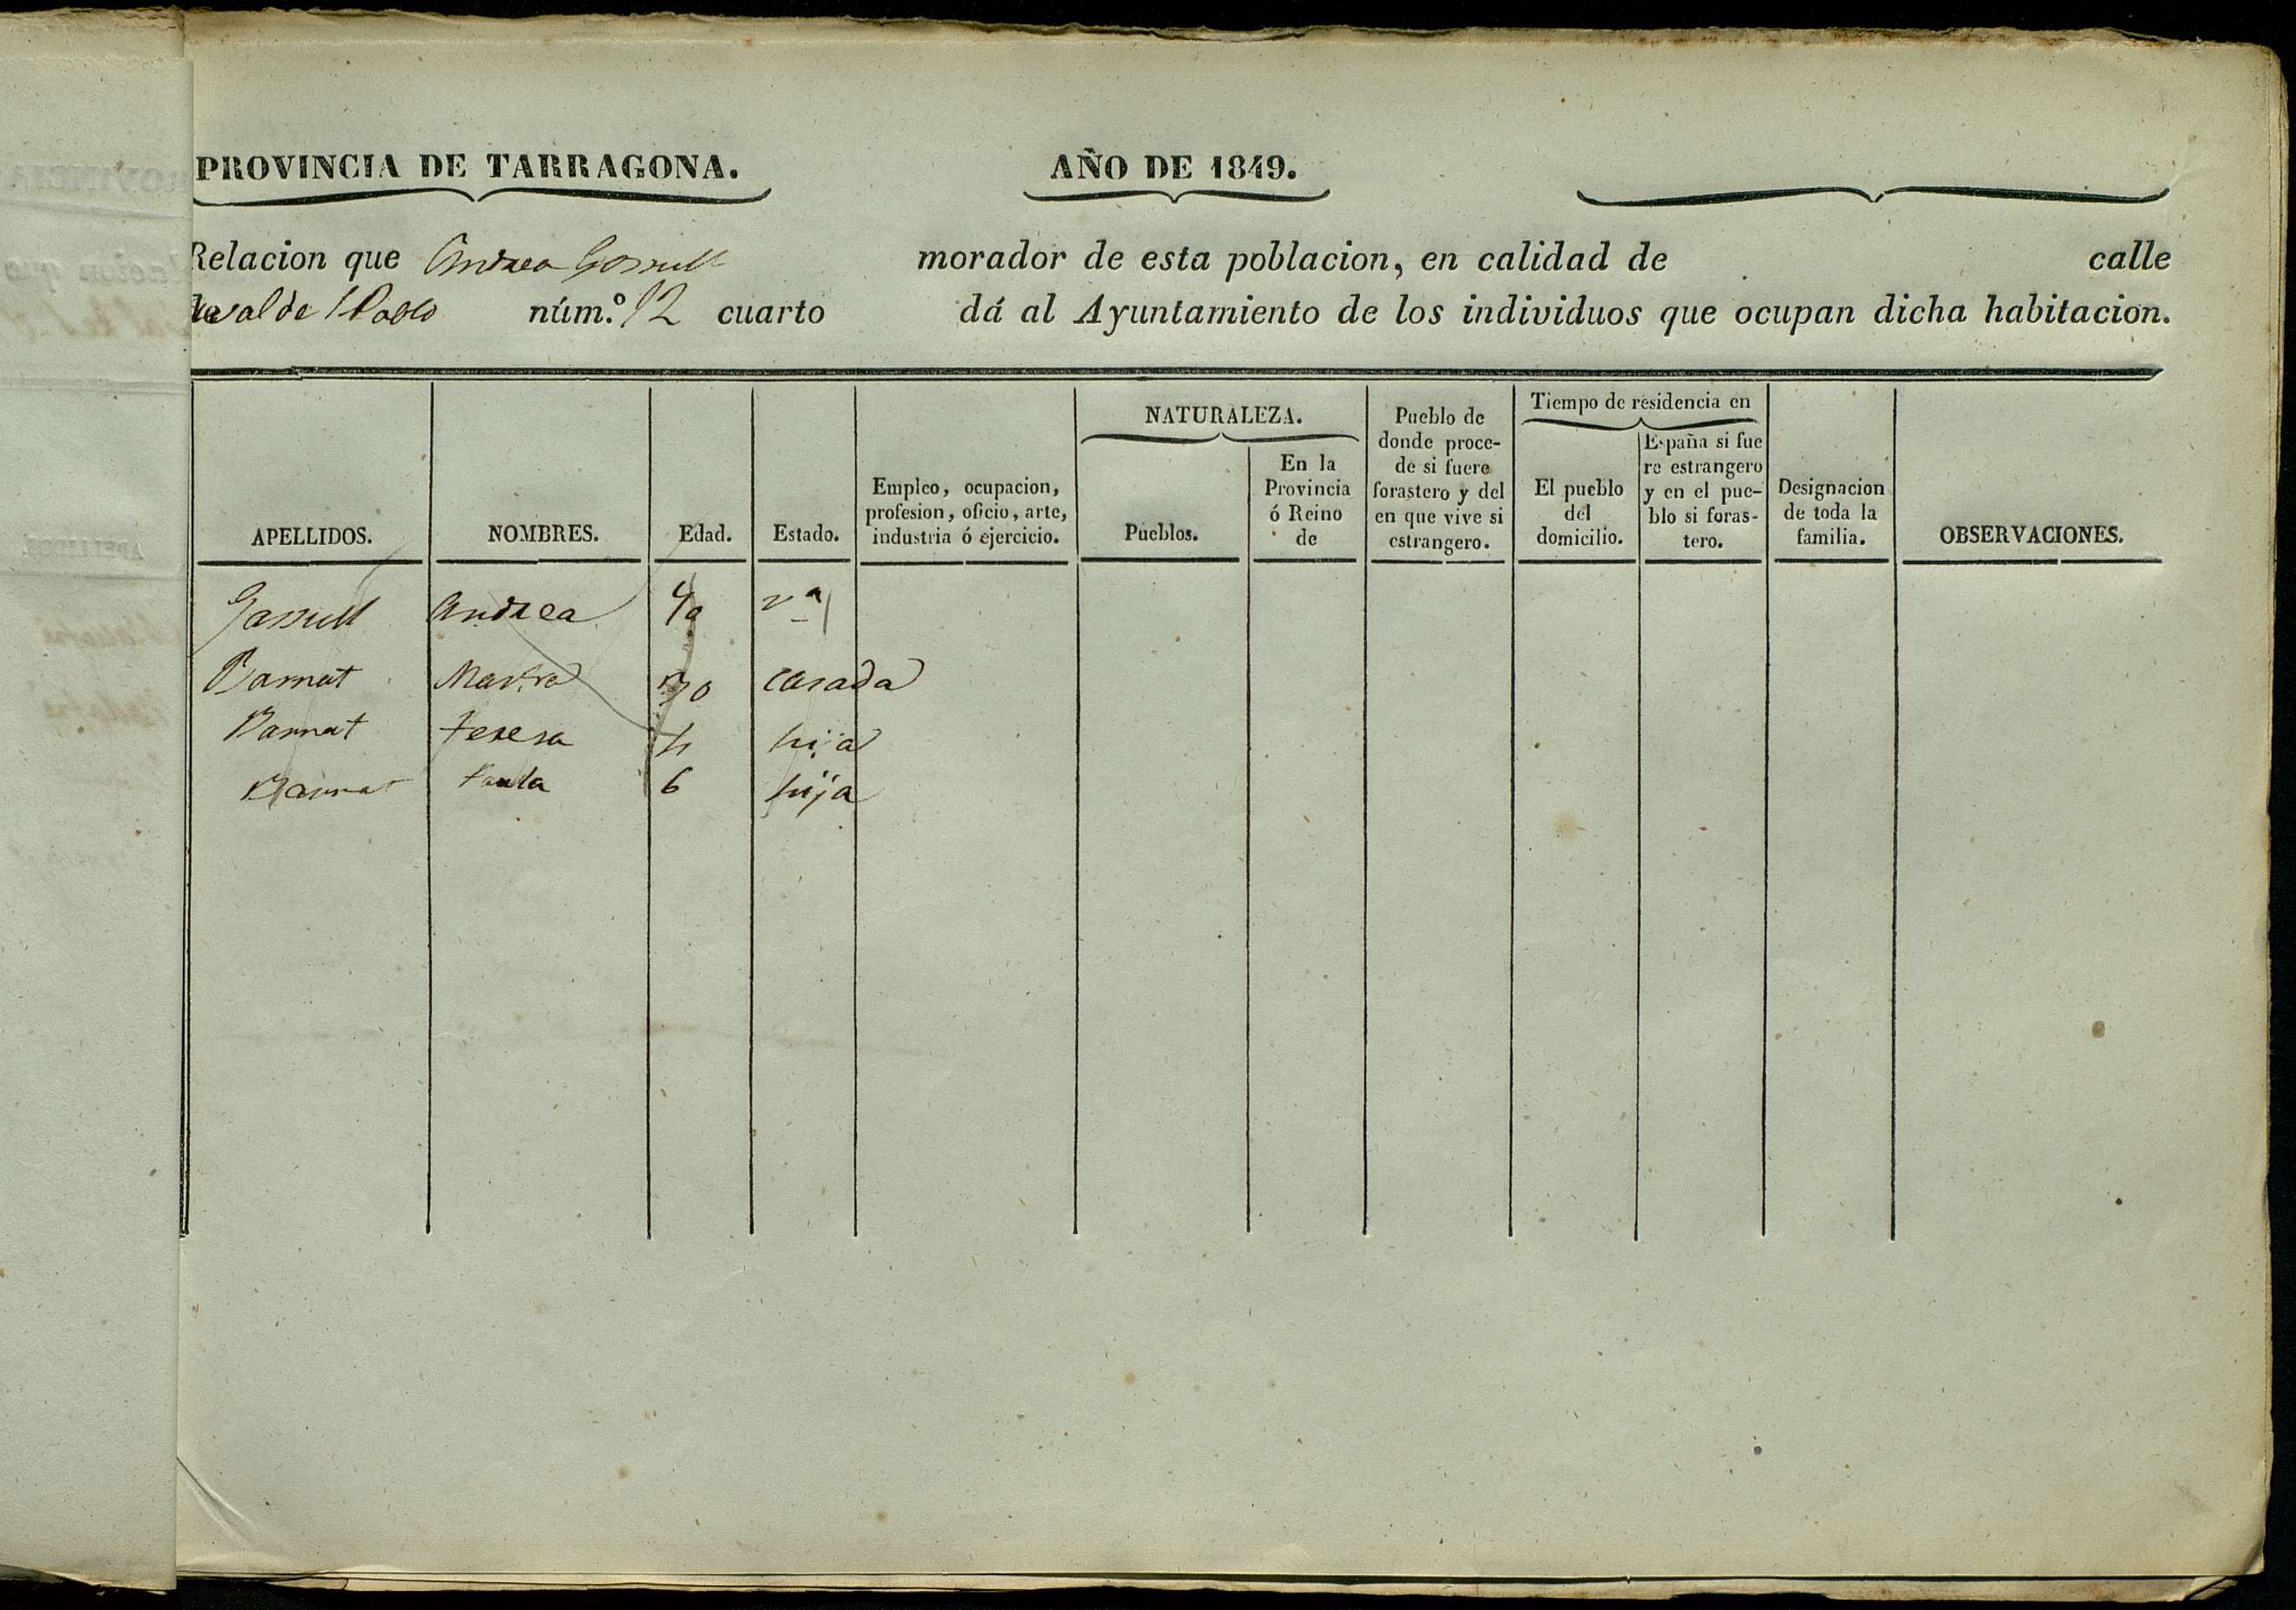 PROVINCIA DE TARRAGONA. AÑO DE 1849.
Relacion que Andrea Gassull morador de esta poblacion, en calidad de calle
de S Pablo núm.º 12 cuarto dá al Ayuntamiento de los individuos que ocupan dicha habitacion.
APELLIDOS.
NOMBRES.
Edad.
Estado.
Empleo, ocupacion,
profesion, oficio, arte,
industria ó ejercicio.
NATURALEZA.
Pueblos.
En la
Provincia
ó Reino
de
Pueblo de
donde proce-
de si fuere
forastero y del
en que vive si
estrangero.
Tiempo de residencia en
El pueblo
del
domicilio.
España si fue
re estrangero
y en el pue-
blo si foras-
tero.
Designacion
de toda la
familia.
OBSERVACIONES.
Gassull Andrea vª
Maria 30 casada
teresa hija
Paula 6 hija